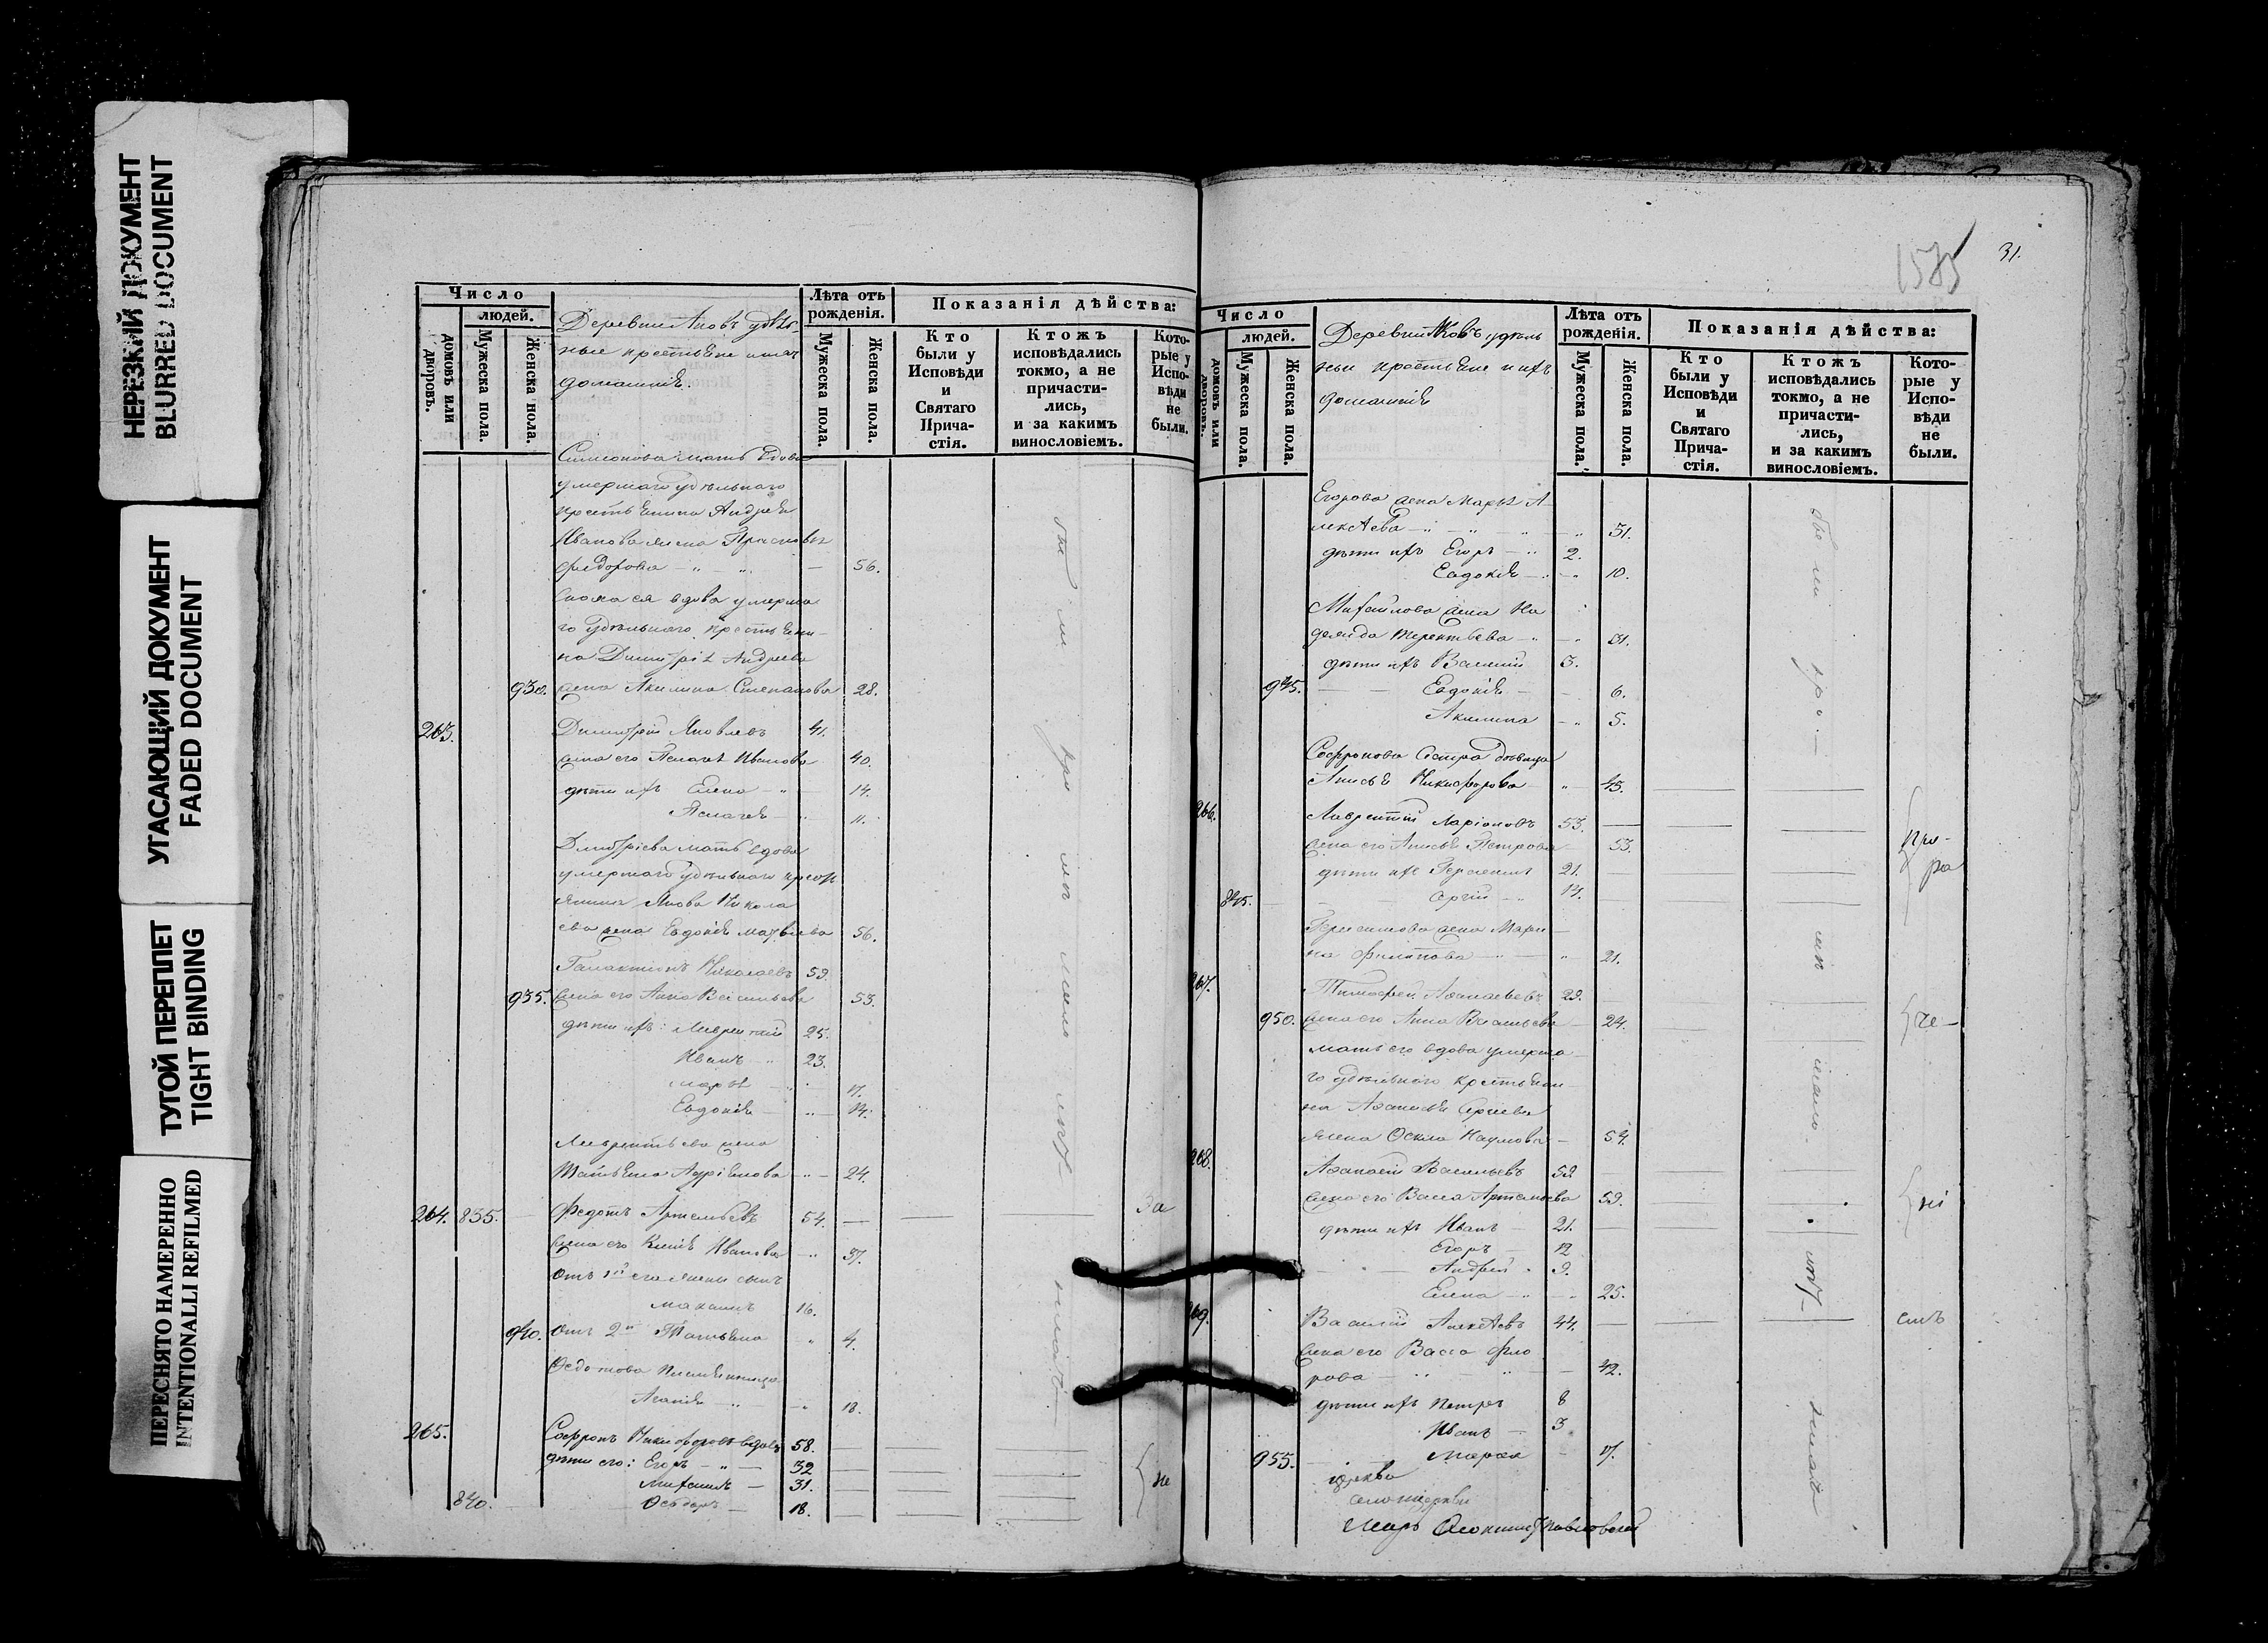 НЕРЕЗКИЙ ДОКУМЕНТ
BLURRED DOCUMENT
УГАСАЮЩИЙ ДОКУМЕНТ
FADED DOCUMENT
ТУГОЙ ПЕРЕПЛЕТ
TIGHT BINDING
ПЕРЕСНЯТО НАМЕРЕННО
INTENTIONALLI REFILMED
Число
людей.
домовъ или дворовъ.
Мужеска пола.
Женска пола.
Деревни
домашніе.
Лѣта отъ рожденія.
Мужеска пола.
Женска пола.
Показанія дѣйства:
Кто были у Исповѣди и Святаго Прича-стія.
Ктожъ исповѣдались токмо, а не причасти-лись, и за какимъ винословіемъ.
Кото-рые у Испо-вѣди не были.
Симеонова мать вдова
умершаго удѣльнаго
крестьянина Андрея
Иванова жена
Федорова — 56.
вдова умерша
го удѣльнаго крестьяни-
на Димитрія Андреева
930. жена Акилина Степанова 28.
263. Димитрій Яковлевъ 41.
жена его Пелагея Иванова 40.
дѣти ихъ Елена 14.
Пелагея 11.
Димитріева мать вдова
умершаго удѣльнаго крест
янина Якова Никола
ева жена Евдокія Матвѣева 56.
Галактіонъ Николаевъ 59.
935. жена его Анна Васильева 53.
дѣти ихъ: Лаврентій 25.
Иванъ 23.
Марья 17.
Евдокія 14.
Лаврентьева жена
Татьяна Адріанова 24.
264. 835. Федотъ Артемьевъ 54. За
жена его Иванова 37.
отъ 1й его жены сынъ
Максимъ 16.
940. отъ 2й Татьяна 4.
Федотова племянница
Агапія 18.
265. Софронъ Никифоровъ вдовъ 58.
дѣти его: Егоръ 32
Михаилъ 31. не
840. Федоръ 18.
1575
31.
Число
людей.
домовъ или дворовъ.
Мужеска пола.
Женска пола.
Деревни удѣль
ные крестьяне и ихъ
домашніе
Лѣта отъ рожденія.
Мужеска пола.
Женска пола.
Показанія дѣйства:
Кто были у Исповѣди и Святаго Прича-стія.
Ктожъ исповѣдались токмо, а не причасти-лись, и за какимъ винословіемъ.
Кото-рые у Испо-вѣди не были.
Егорова жена Марья А
лексѣева 31.
дѣти ихъ Егоръ 2.
Евдокія 10.
Михайлова жена На
дежда Терентьева 31.
дѣти ихъ Василій 3.
945. Евдокія 6.
Акилина 5.
Софронова сестра дѣвица
Анисья Никифорова 45.
266. Лаврентій Ларіоновъ 53.
жена его Анисья Петрова 53.
дѣти ихъ Герасимъ 21.
845. Сергій 14.
Герасимова жена Мари
на Филипова 21.
267. Тимофей Афанасьевъ 29.
950. жена его Анна Васильева 24.
мать его вдова умерша
го удѣльнаго крестьяни
на Афанасья Сергеева
жена Наумова 54.
268. Афанасій Васильевъ 52
жена его Васса Артемьева 59.
дѣти ихъ Иванъ 21.
Егоръ 12
Андрей 9.
Елена 25.
269. Василій Алексѣевъ 44.
жена его Васса Фло
рова 42.
дѣти ихъ Петръ 8
Иванъ 3
955. Марѳа 17.